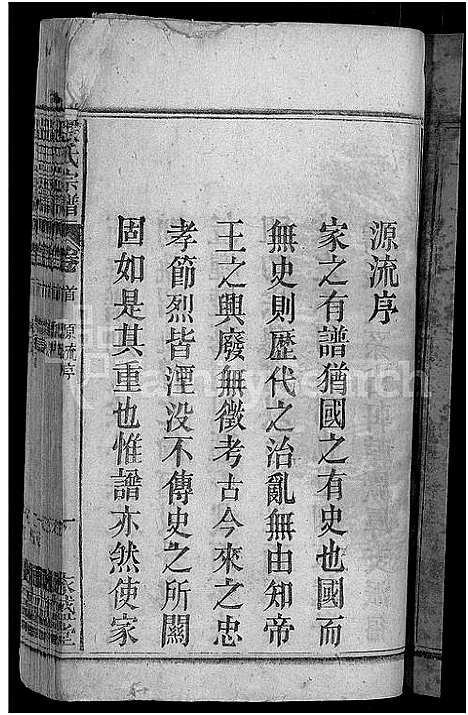 源流序
家之有譜猶國之有史也國而
無史則歷代之治亂無由知帝
王之興廢無徵考古今來之忠
孝節烈皆湮没不傳史之所關
固如是其重也惟譜亦然使家
氏宗譜 卷首 源流序 一